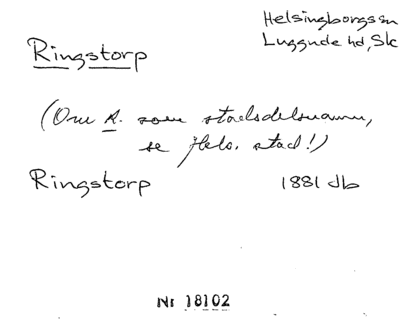 Helsingborgs sn
Luggude hd, Sk
Ringstorp
(Om R. som stadsdelsnamn,
se Hels. stad!)
Ringstorp 1881 Jb
Nr 18102